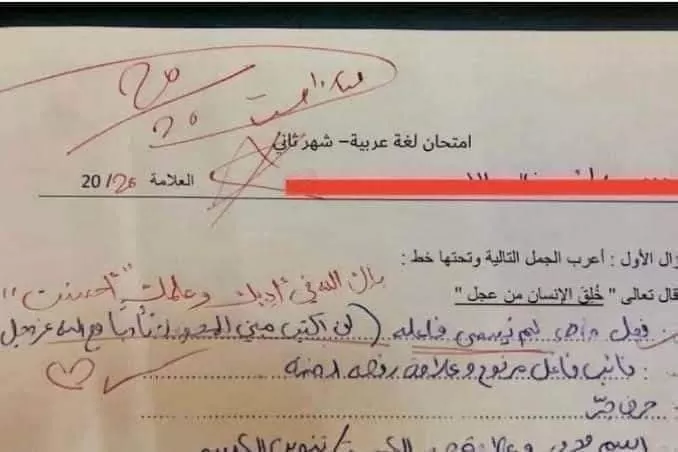 20
20
ممتاز احسنت
امتحان لغة عربية– شهر ثاني
العلامة 20/20
زال الأول : أعرب الجمل التالية وتحتها خط :
قال تعالى " خُلِقَ الإنسان من عجل "
بارك الله في أدبك وعلمك "أحسنت"
فعل ماض لم يسمى فاعله (لن أكتب مبني للمجهول تأدبا مع الله عز وجل
: نائب فاعل مرفوع وعلامة رفعه الضمة
حرف جرّ
اسم مجرور وعلامة جره الكسرة / تنوين الكسر